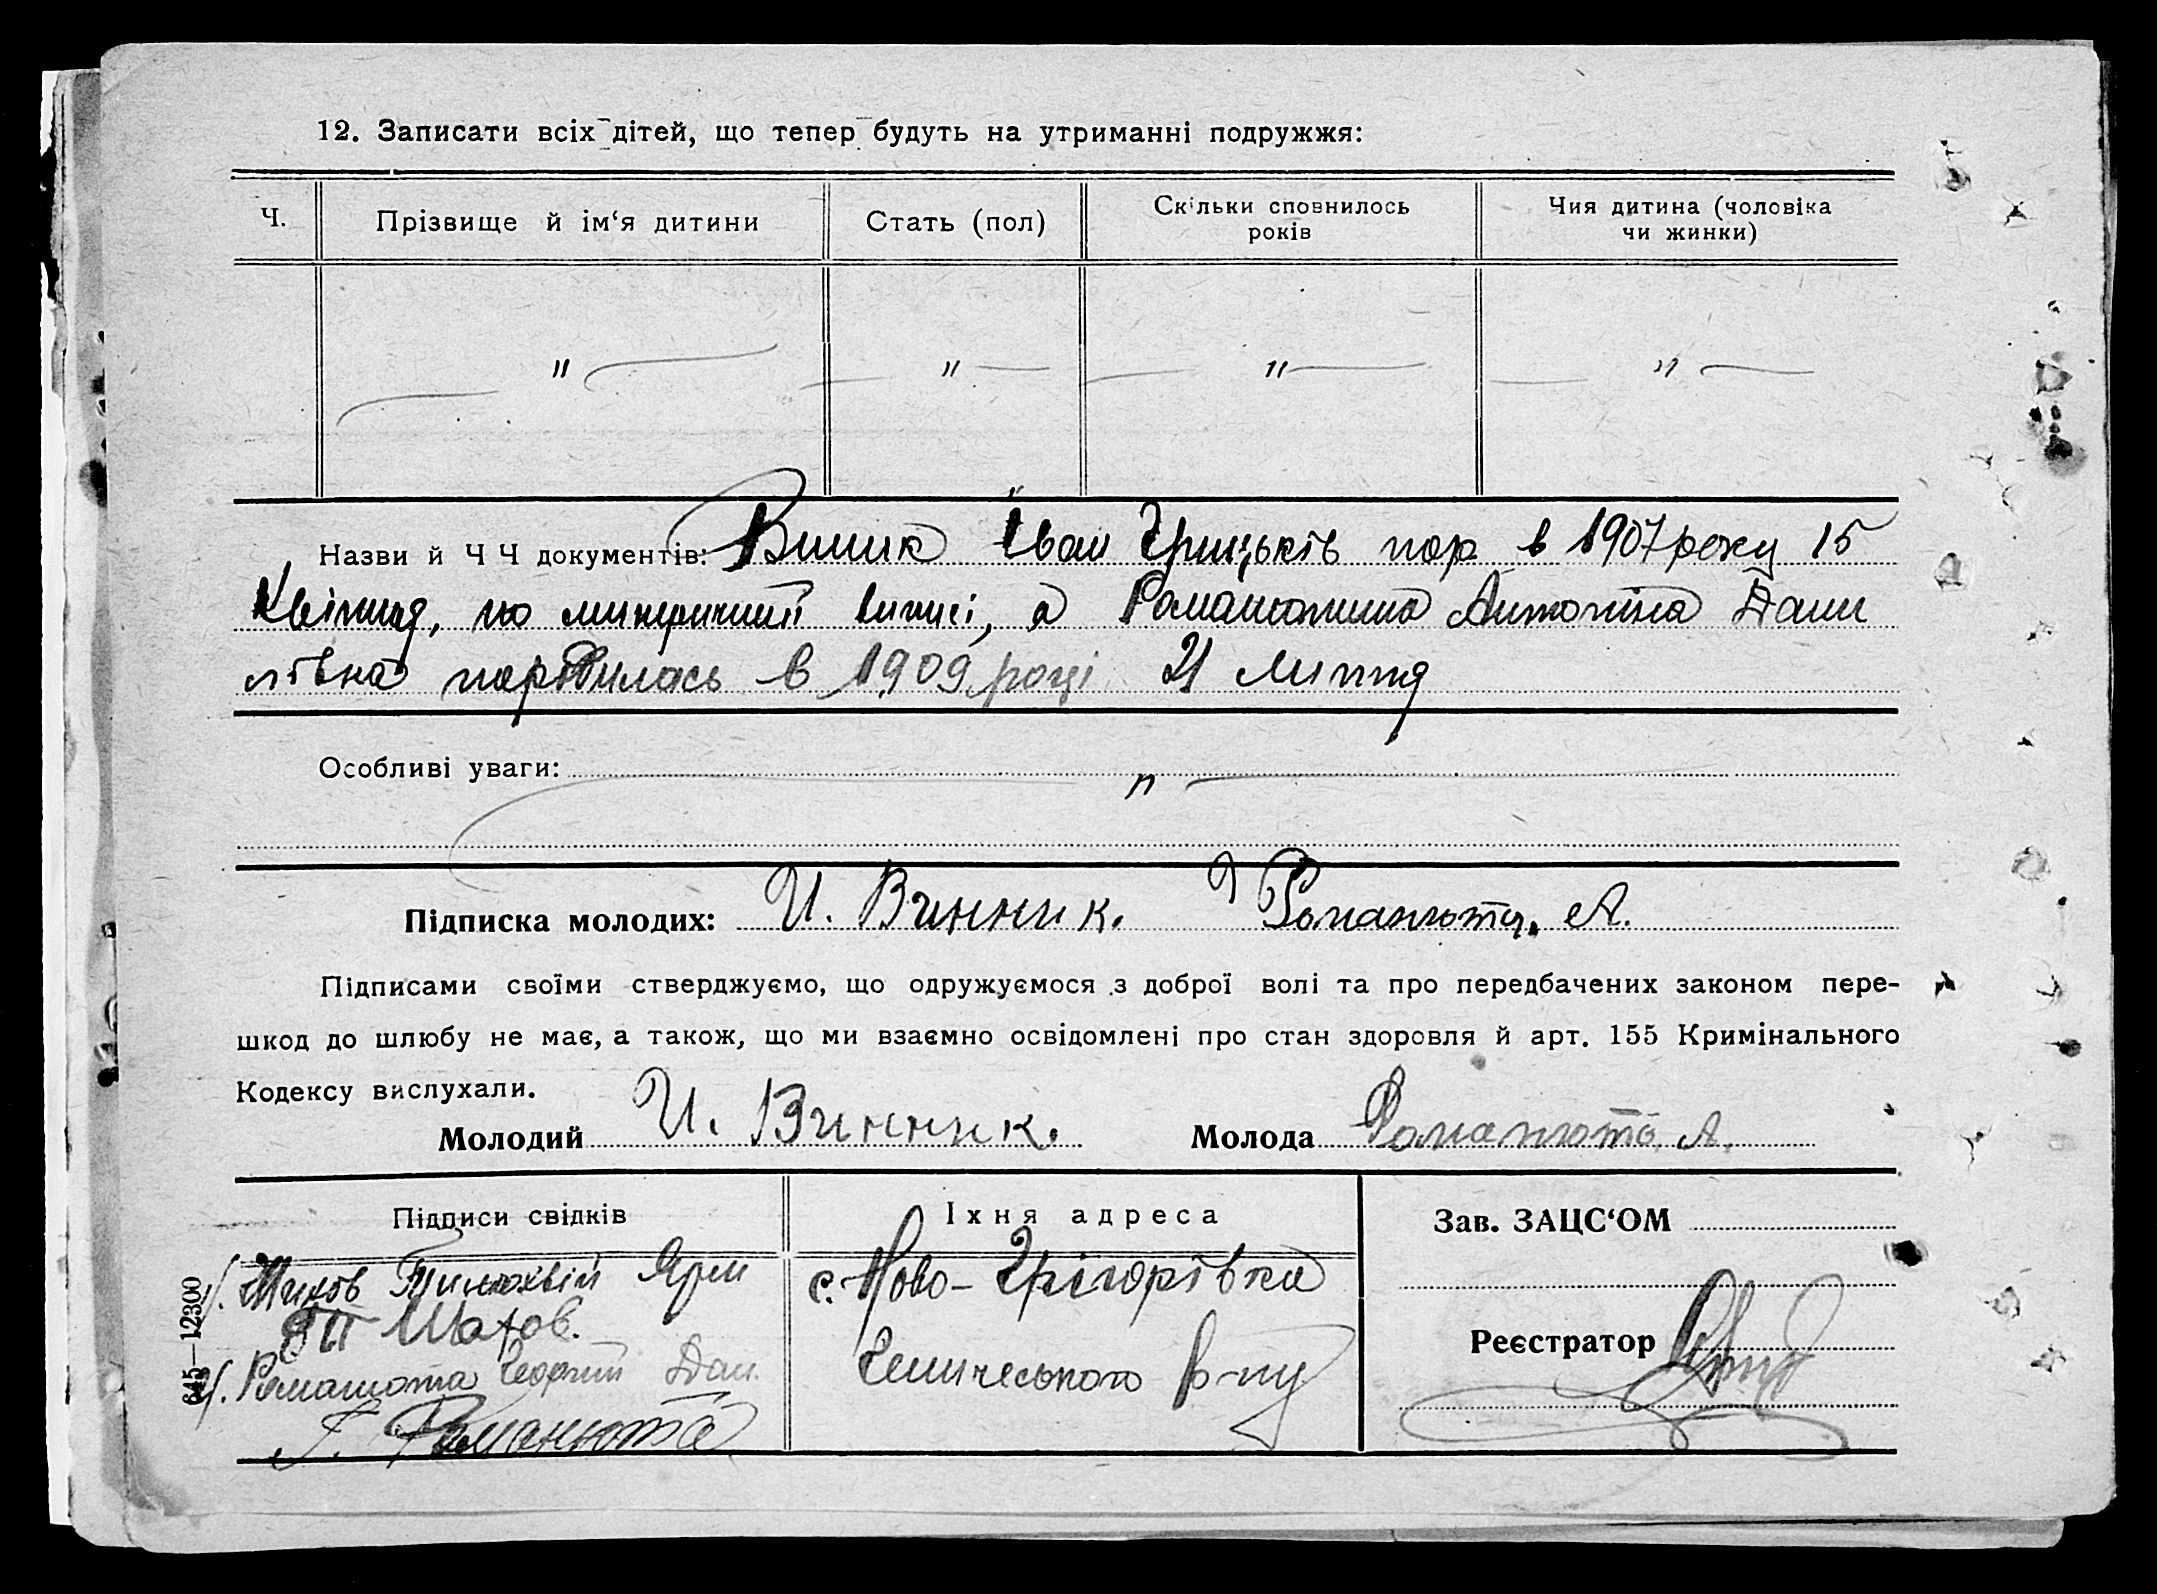 12. Записати всіх дітей, що тепер будуть на утриманні подружжя:
Ч.
Прізвище й ім‘я дитини
Стать (пол)
Скільки сповнилось
років
Чия дитина (чоловіка
чи жинки)
" " " "
Назви й Ч Ч документів: Виник Іван Грицьків пор в 1907 року 15
Квітня, по метричній виписі, а Романютина Антоніна Дани
лівна породилась в 1909 році 21 Липня
Особливі уваги: "
Підписка молодих: И. Винник. Романюта, А.
Підписами своїми стверджуємо, що одружуємося з доброї волі та про передбачених законом пере-
шкод до шлюбу не має, а також, що ми взаємно освідомлені про стан здоровля й арт. 155 Кримінального
Кодексу вислухали.
Молодий И. Винник. Молода Романюта А.
Підписи свідків
Їхня адреса
Зав. ЗАЦС‘ОМ
1. Шахов Тимохвій Ярм
Шахов.
2. Романюта Георгий Дан.
Г. Романюта
с. Ново-Грігорівка
Генического р-ну
Реєстратор
645—12300